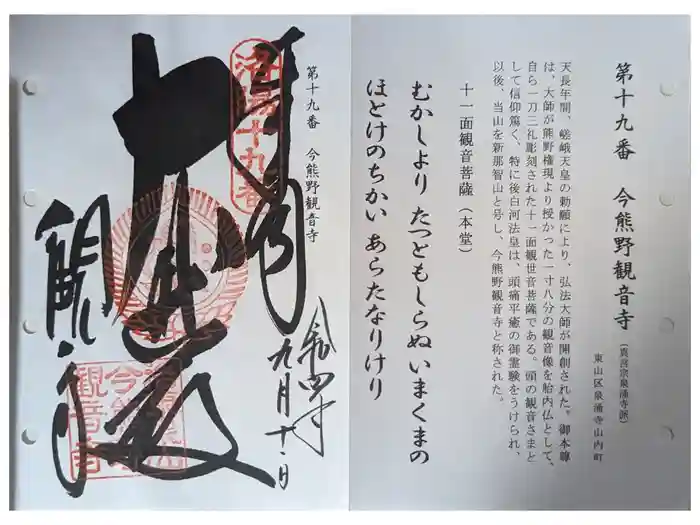 第十九番 今熊野観音寺
(真言宗泉涌寺派)
東山区泉涌寺山内町
天長年間、嵯峨天皇の勅願により、弘法大師が開創された。御本尊
は、大師が熊野権現より授かった一寸八分の観音像を胎内仏として、
自ら一刀三礼彫刻された十一面観世音菩薩である。頭の観音さまと
して信仰篤く、特に後白河法皇は、頭痛平癒の御霊験をうけられ、
以後、当山を新那智山と号し、今熊野観音寺と称された。
十一面観音菩薩(本堂)
むかしより たつともしらぬ いまくまの
ほとけのちかい あらたなりけり
第十九番 今熊野観音寺
奉拝
洛陽十九番
令和四年
九月十一日
大悲殿
観音寺
今熊野
観音寺